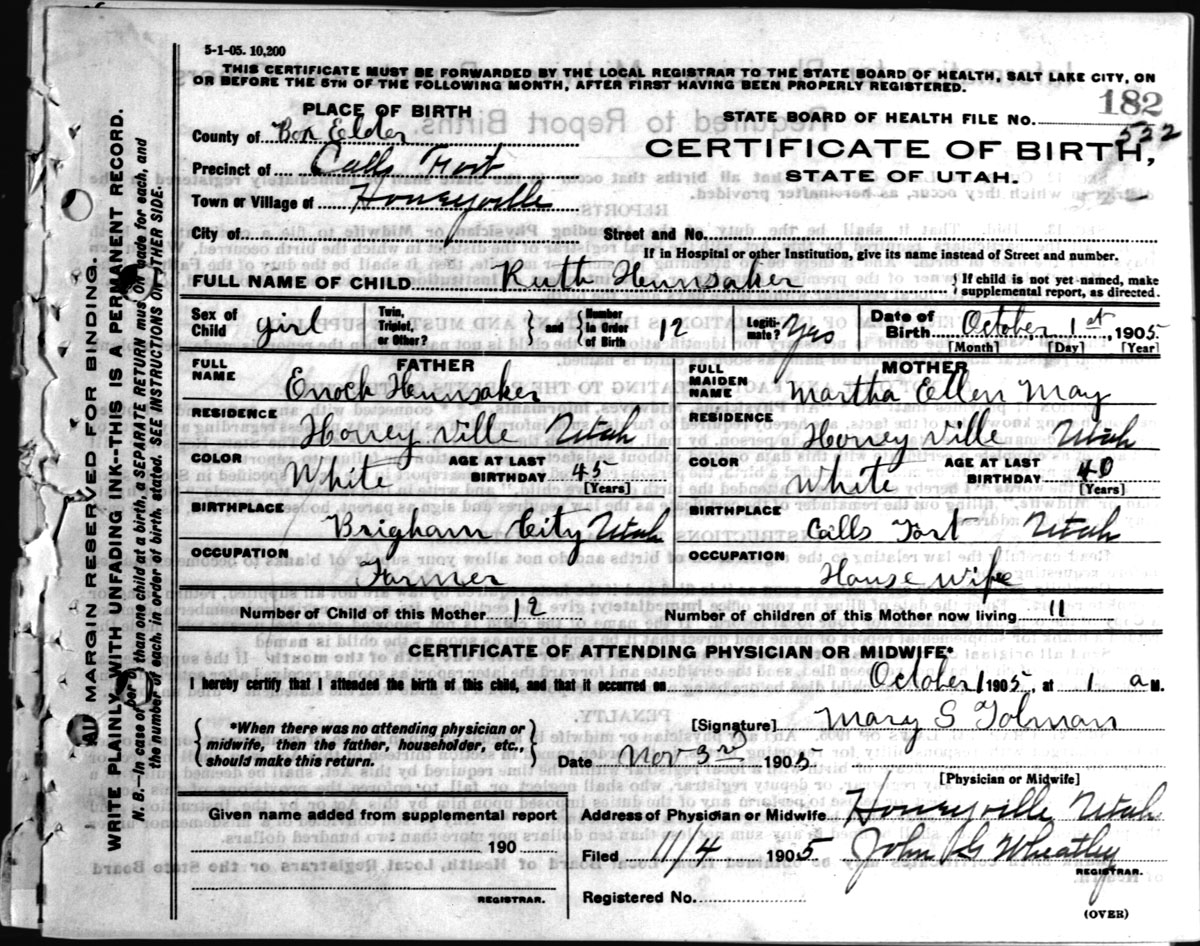 5-1-05. 10,200
THIS CERTIFICATE MUST BE FORWARDED BY THE LOCAL REGISTRAR TO THE STATE BOARD OF HEALTH, SALT LAKE CITY, ON
OR BEFORE THE 5TH OF THE FOLLOWING MONTH, AFTER FIRST HAVING BEEN PROPERLY REGISTERED.
182
PLACE OF BIRTH
STATE BOARD OF HEALTH FILE NO.
532
County of Box Elder
CERTIFICATE OF BIRTH,
Precinct of Calls Fort
STATE OF UTAH.
Town or Village of Honeyville
City of Street and No.
If in Hospital or other Institution, give its name instead of Street and number.
FULL NAME OF CHILD Ruth Hunsaker { If child is not yet named, make
supplemental report, as directed.
Sex of Child girl Twin, Triplet, or Other? } and { Number in Order of Birth 12 Legiti-mate? Yes Date of Birth October 1st 1905
[Month] [Day] [Year]
FATHER
FULL NAME Enoch Hunsaker
RESIDENCE
Honeyville Utah
COLOR White AGE AT LAST BIRTHDAY 45
[Years]
BIRTHPLACE
Brigham City Utah
OCCUPATION
Farmer
MOTHER
FULL MAIDEN NAME Martha Ellen May
RESIDENCE
Honeyville Utah
COLOR White AGE AT LAST BIRTHDAY 40
[Years]
BIRTHPLACE
Calls Fort Utah
OCCUPATION
House wife
Number of Child of this Mother 12 Number of children of this Mother now living 11
CERTIFICATE OF ATTENDING PHYSICIAN OR MIDWIFE*
I hereby certify that I attended the birth of this child, and that it occurred on October 1 1905, at 1 a M.
{ *When there was no attending physician or
midwife, then the father, householder, etc.,
should make this return. }
[Signature] Mary S Tolman
Date Nov 3rd 1905
[Physician or Midwife]
Given name added from supplemental report
190
REGISTRAR.
Address of Physician or Midwife Honeyville Utah
Filed 11/4 1905 John G Wheatley
REGISTRAR.
Registered No.
(OVER)
MARGIN RESERVED FOR BINDING.
WRITE PLAINLY WITH UNFADING INK--THIS IS A PERMANENT RECORD.
N. B.--In case of more than one child at a birth, a SEPARATE RETURN must be made for each, and
the number of each, in order of birth, stated. SEE INSTRUCTIONS ON OTHER SIDE.